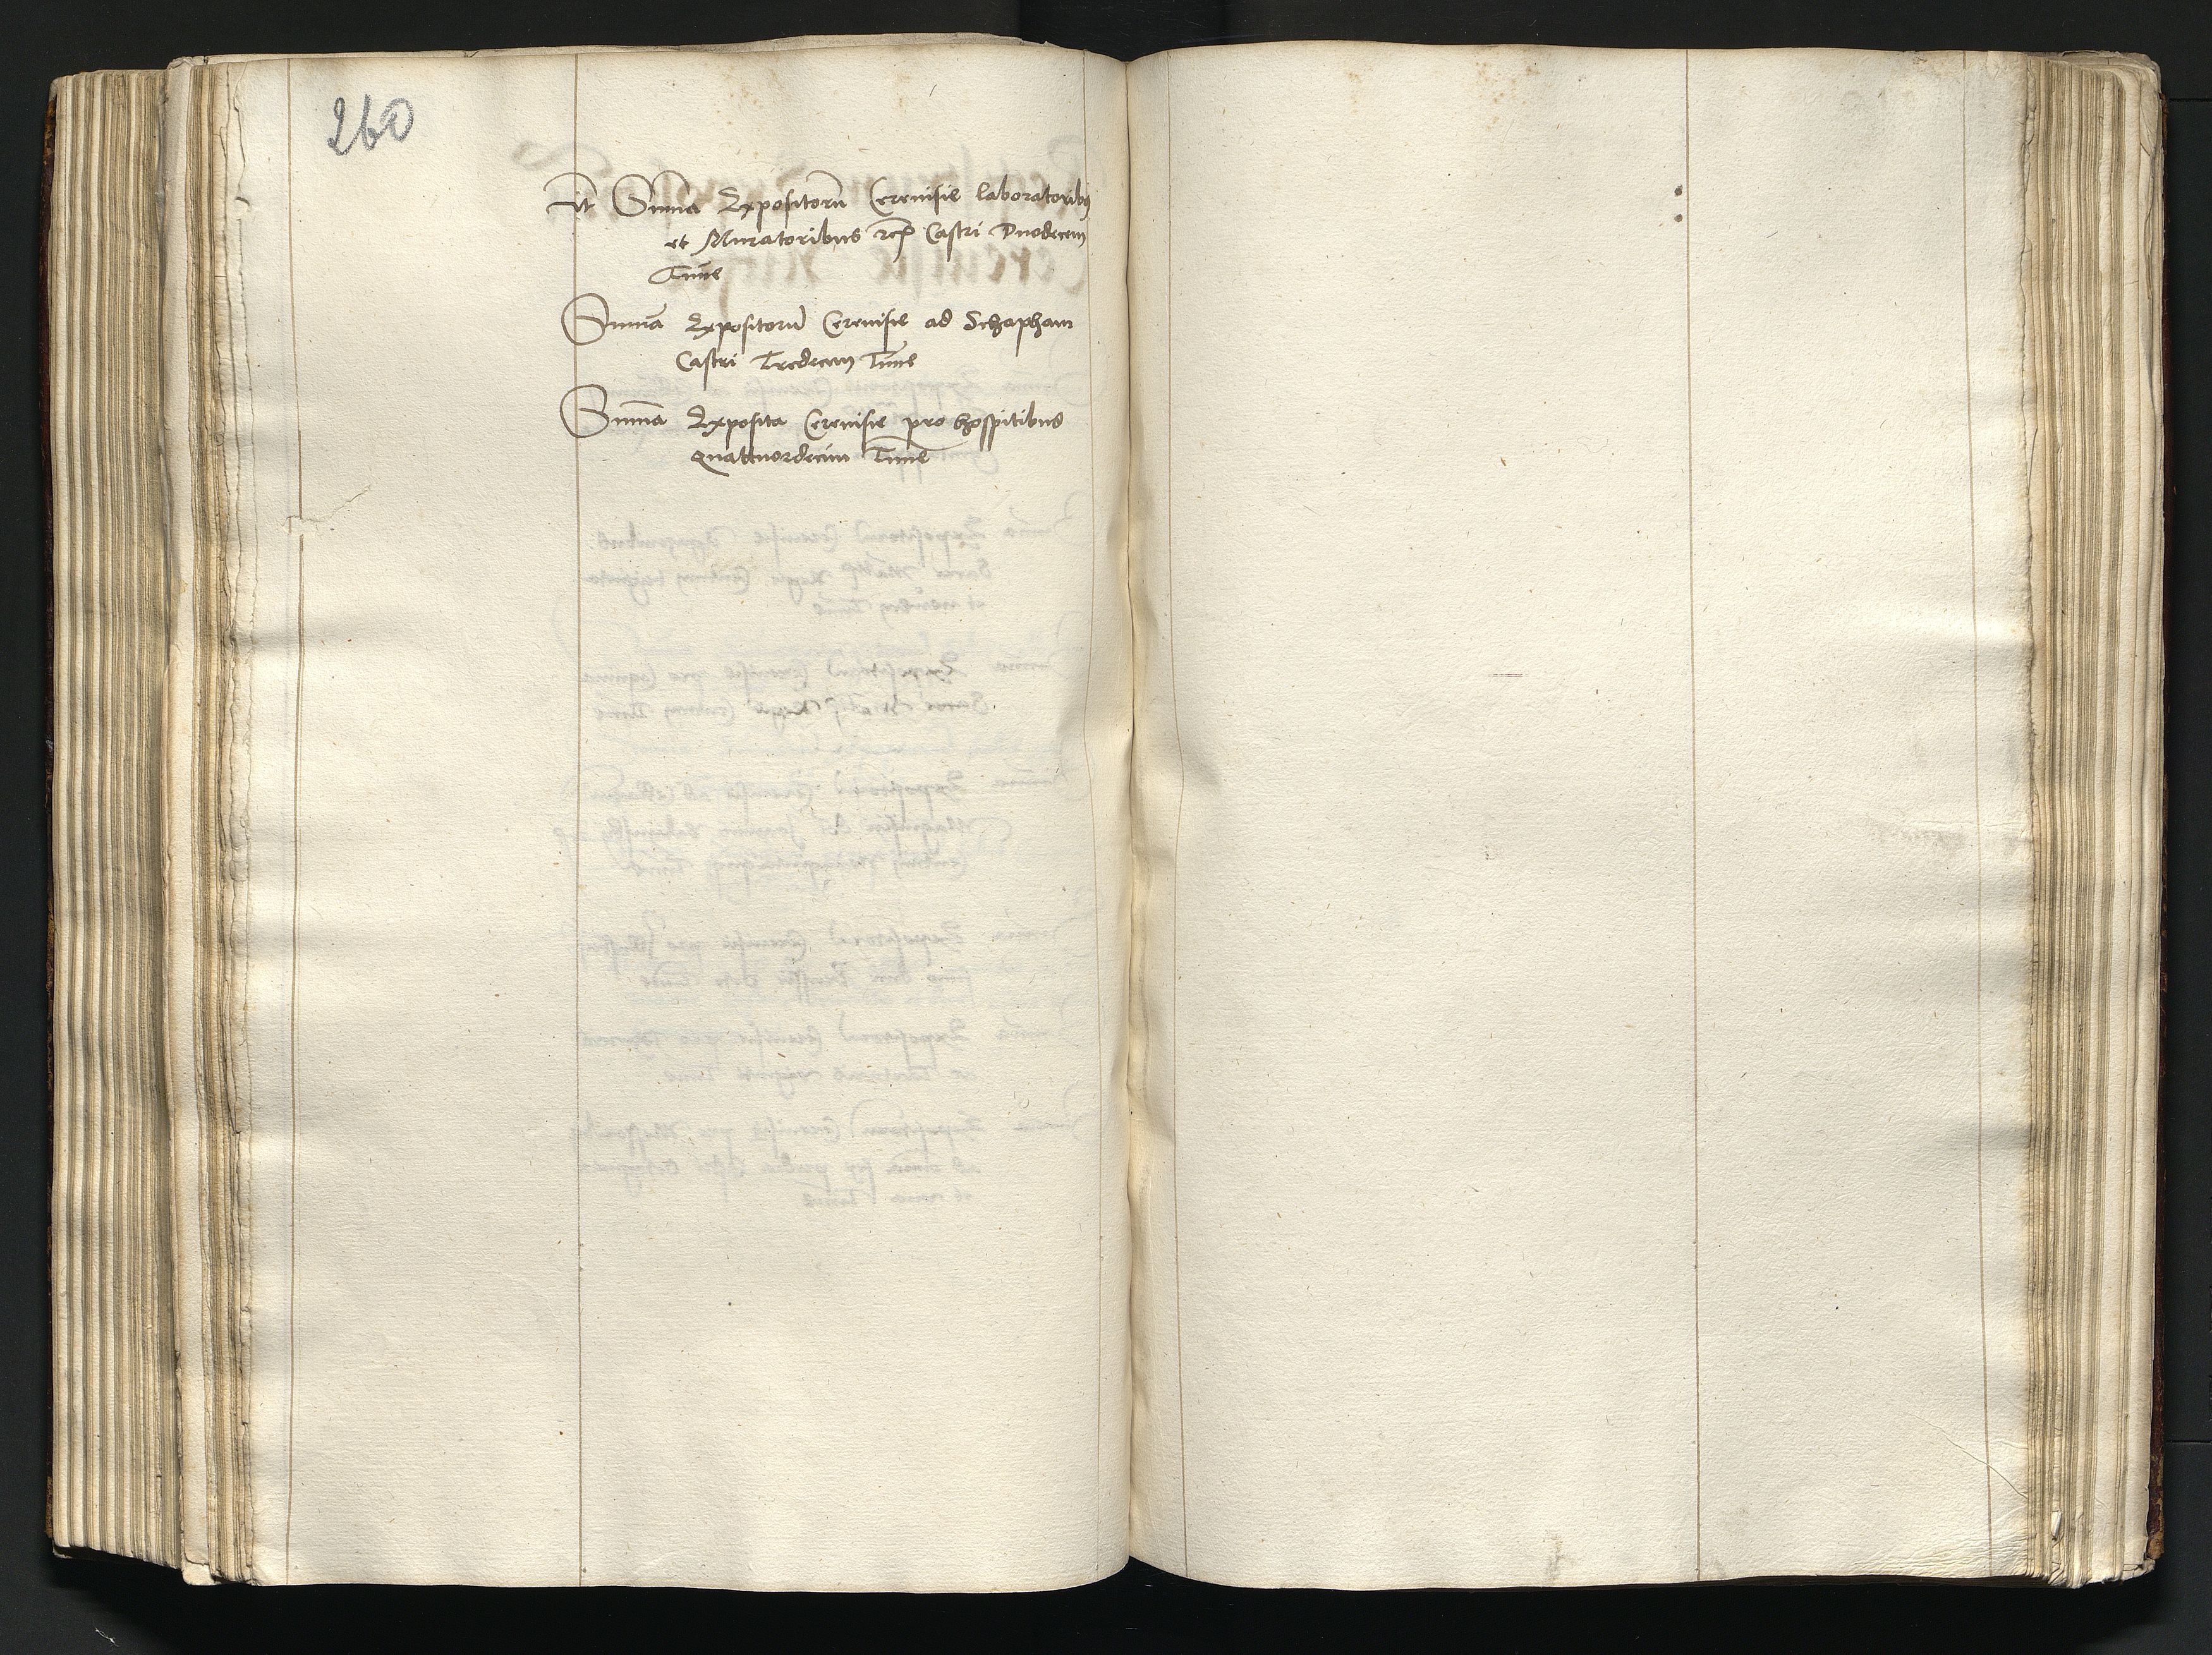 260
It Suma̅ Expositoru̅ Cerevisie laboratoribus
et Muratoribus Castri Duodecem
Tu̅ne
Suma̅ Expositoru̅ Cerevisie ad Schapham
Castri Tredecem Tu̅ne
Suma̅ Exposita Cerevisie pro hospitibus
Quattuordecim Tu̅ne